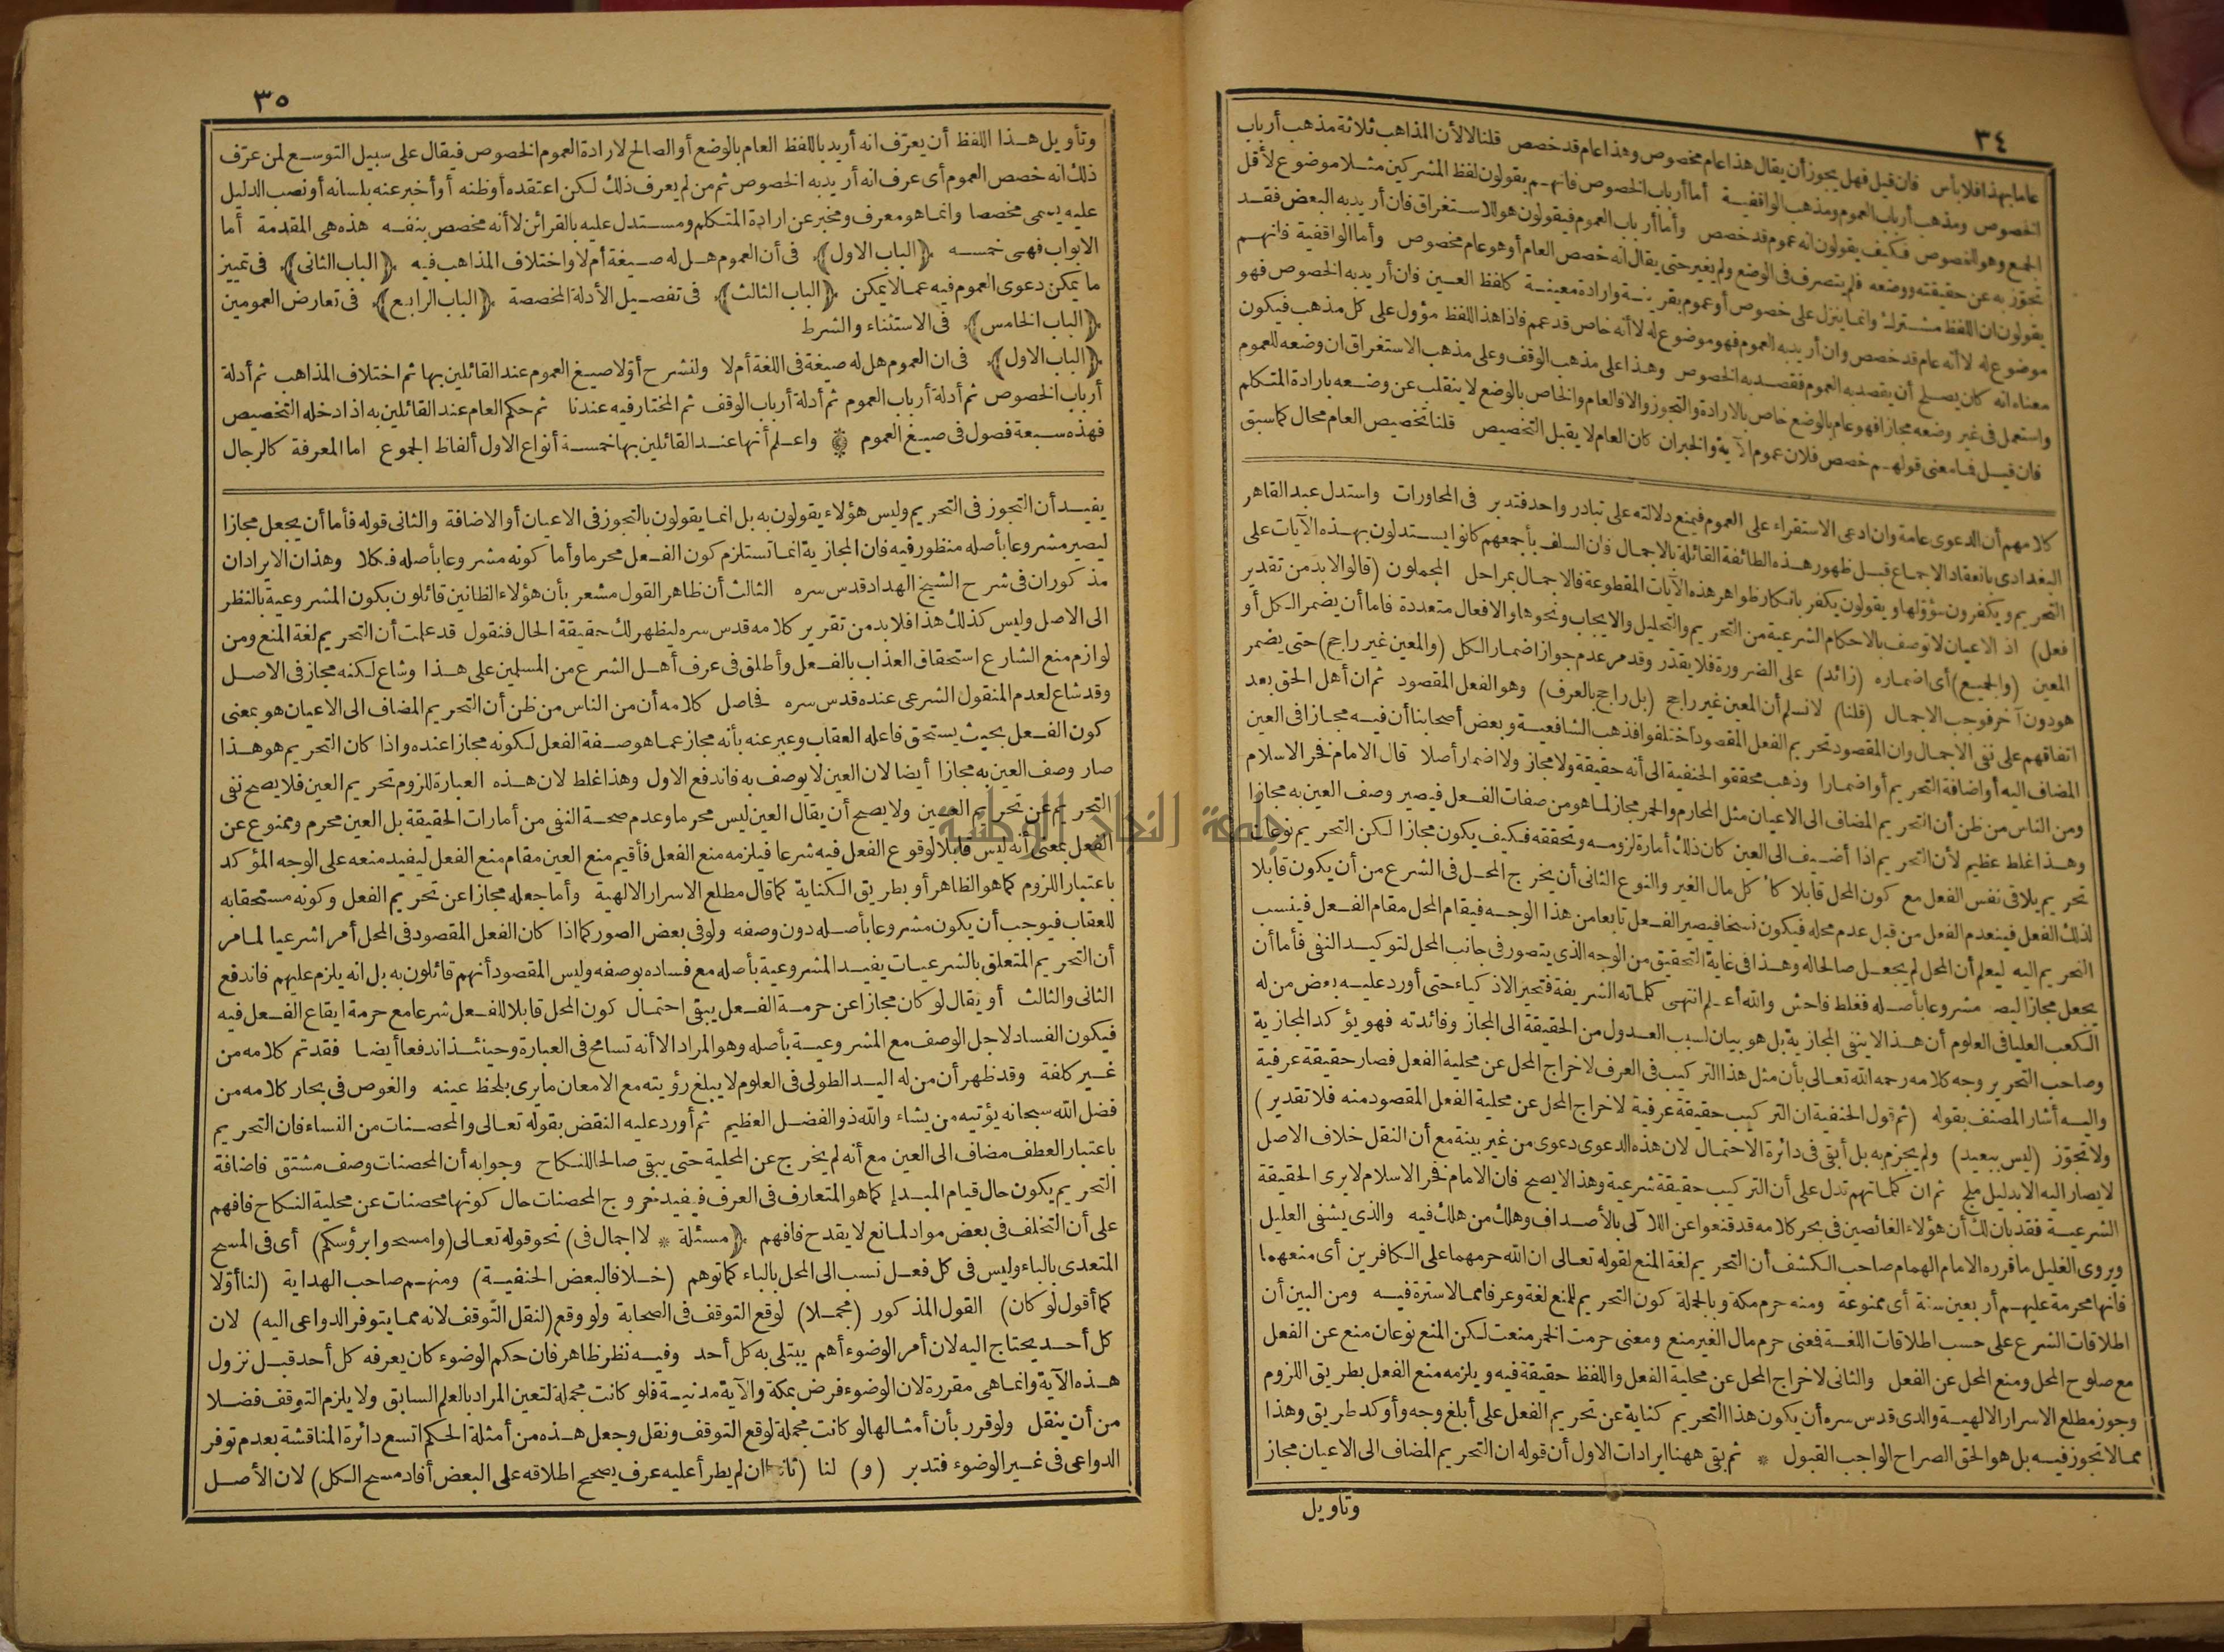 ٣٤
عاما بهذا فلا بأس فان قيل فهل يجوز أن يقال هذا عام مخصوص وهذا عام قد خصص قلنا لا لأن المذاهب ثلاثة مذهب أرباب
الخصوص ومذهب أرباب العموم ومذهب الواقفية أما أرباب الخصوص فانهم يقولون لفظ المشركين مثلا موضوع لأقل
الجمع وهو للخصوص فكيف يقولون انه عموم قد خصص وأما أرباب العموم فيقولون هو للاستغراق فان أريد به البعض فقد
تجوّز به عن حقيقته ووضعه فلم يتصرف فى الوضع ولم يغير حتى يقال انه خصص العام أو هو عام مخصوص وأما الواقفية فانهم
يقولون ان اللفظ مشترك وانما ينزل على خصوص أو عموم بقرينة وارادة معينة كلفظ العين فان أريد به الخصوص فهو
موضوع له لا أنه عام قد خصص وان أريد به العموم فهو موضوع له لا أنه خاص قد عمم فاذا هذا اللفظ مؤول على كل مذهب فيكون
معناه انه كان يصلح أن يقصد به العموم فقصد به الخصوص وهذا على مذهب الوقف وعلى مذهب الاستغراق ان وضعه للعموم
واستعمل فى غير وضعه مجازا فهو عام بالوضع خاص بالارادة والتجوز والا فالعام والخاص بالوضع لا ينقلب عن وضعه بارادة المتكلم
فان قيل فما معنى قولهم خصص فلان عموم الآية والخبر ان كان العام لا يقبل التخصيص قلنا تخصيص العام محال كما سبق
كلامهم أن الدعوى عامة وان ادعى الاستقراء على العموم فيمنع دلالته على تبادر واحد فتدبر فى المحاورات واستدل عبد القاهر
البغدادى بانعقاد الاجماع قبل ظهور هذه الطائفة القائلة بالاجمال فان السلف بأجمعهم كانوا يستدلون بهذه الآيات على
التحريم ويكفرون مؤولها ويقولون يكفر بانكار ظواهر هذه الآيات المقطوعة فالاجمال بمراحل المجملون (قالوا لابد من تقدير
فعل) اذ الاعيان لا توصف بالاحكام الشرعية من التحريم والتحليل والايجاب ونحوها والافعال متعددة فاما أن يضمر الكل أو
المعين (والجميع) أى اضماره (زائد) على الضرورة فلا يقدّر وقد مر عدم جواز اضمار الكل (والمعين غير راجح) حتى يضمر
هو دون آخر فوجب الاجمال (قلنا) لا نسلم أن المعين غير راجح (بل راجح بالعرف) وهو الفعل المقصود ثم ان أهل الحق بعد
اتفاقهم على نفى الاجمال وان المقصود تحريم الفعل المقصود اختلفوا فذهب الشافعية وبعض أصحابنا أن فيه مجازا فى العين
المضاف اليه أو اضافة التحريم أو اضمارا وذهب محققو الحنفية الى أنه حقيقة ولا مجاز ولا اضمار أصلا قال الامام فخر الاسلام
ومن الناس من ظن أن التحريم المضاف الى الاعيان مثل المحارم والخمر مجاز لما هو من صفات الفعل فيصير وصف العين به مجازا
وهذا غلط عظيم لأن التحريم اذا أضيف الى العين كان ذلك أمارة لزومه وتحققه فكيف يكون مجازا لكن التحريم نوعان
تحريم يلاقى نفس الفعل مع كون المحل قابلا كأكل مال الغير والنوع الثانى أن يخرج المحل فى الشرع من أن يكون قابلا
لذلك الفعل فينعدم الفعل من قبل عدم محله فيكون نسخا فيصير الفعل تابعا من هذا الوجه فيقام المحل مقام الفعل فينسب
التحريم اليه ليعلم أن المحل لم يجعل صالحا له وهذا فى غاية التحقيق من الوجه الذى يتصور فى جانب المحل لتوكيد النفى فأما أن
يجعل مجازا ليصير مشروعا بأصله فغلط فاحش والله أعلم انتهى كلماته الشريفة فتحير الاذكياء حتى أورد عليه بعض من له
الكعب العليا فى العلوم أن هذا لا ينفى المجازية بل هو بيان لسبب العدول من الحقيقة الى المجاز وفائدته فهو يؤكد المجازية
وصاحب التحرير وجه كلامه رحمه الله تعالى بأن مثل هذا التركيب فى العرف لاخراج المحل عن محلية الفعل فصار حقيقة عرفية
واليه أشار المصنف بقوله (ثم قول الحنفية ان التركيب حقيقة عرفية لاخراج المحل عن محلية الفعل المقصود منه فلا تقدير)
ولا تجوّز (ليس ببعيد) ولم يجزم به بل أبقى فى دائرة الاحتمال لان هذه الدعوى دعوى من غير بينة مع أن النقل خلاف الاصل
لا يصار اليه الا بدليل ملجئ ثم ان كلماتهم تدل على أن التركيب حقيقة شرعية وهذا لا يصح فان الامام فخر الاسلام لا يرى الحقيقة
الشرعية فقد بان لك أن هؤلاء الغائصين فى بحر كلامه قد قنعوا عن اللآلى بالأصداف وهلك من هلك فيه والذى يشفى العليل
ويروى الغليل ما قرره الامام الهمام صاحب الكشف أن التحريم لغة المنع لقوله تعالى ان الله حرمهما على الكافرين أى منعهما
فانها محرمة عليهم أربعين سنة أى ممنوعة ومنه حرم مكة وبالجملة كون التحريم للمنع لغة وعرفا مما لا سترة فيه ومن البين أن
اطلاقات الشرع على حسب اطلاقات اللغة فمعنى حرم مال الغير منع ومعنى حرمت الخمر منعت لكن المنع نوعان منع عن الفعل
مع صلوح المحل ومنع المحل عن الفعل والثانى لاخراج المحل عن محلية الفعل واللفظ حقيقة فيه ويلزمه منع الفعل بطريق اللزوم
وجوز مطلع الاسرار الالهية والدى قدس سره أن يكون هذا التحريم كناية عن تحريم الفعل على أبلغ وجه وأوكد طريق وهذا
مما لا تجوز فيه بل هو الحق الصراح الواجب القبول * ثم بقى ههنا ايرادات الاول أن قوله ان التحريم المضاف الى الاعيان مجاز
وتأويل
٣٥
وتأويل هذا اللفظ أن يعرّف انه أريد باللفظ العام بالوضع أو الصالح لارادة العموم الخصوص فيقال على سبيل التوسع لمن عرّف
ذلك انه خصص العموم أى عرف انه أريد به الخصوص ثم من لم يعرف ذلك لكن اعتقده أو ظنه أو أخبر عنه بلسانه أو نصب الدليل
عليه يسمى مخصصا وانما هو معرف ومخبر عن ارادة المتكلم ومستدل عليه بالقرائن لا أنه مخصص بنفسه هذه هى المقدمة أما
الابواب فهى خمسة ﴿الباب الاول﴾ فى أن العموم هل له صيغة أم لا واختلاف المذاهب فيه ﴿الباب الثانى﴾ فى تمييز
ما يمكن دعوى العموم فيه عما لا يمكن ﴿الباب الثالث﴾ فى تفصيل الأدلة المخصصة ﴿الباب الرابع﴾ فى تعارض العمومين
﴿الباب الخامس﴾ فى الاستثناء والشرط
﴿الباب الاول﴾ فى ان العموم هل له صيغة فى اللغة أم لا ولنشرح أوّلا صيغ العموم عند القائلين بها ثم اختلاف المذاهب ثم أدلة
أرباب الخصوص ثم أدلة أرباب العموم ثم أدلة أرباب الوقف ثم المختار فيه عندنا ثم حكم العام عند القائلين به اذا دخله التخصيص
فهذه سبعة فصول فى صيغ العموم * واعلم أنها عند القائلين بها خمسة أنواع الاول ألفاظ الجموع اما المعرفة كالرجال
يفيد أن التجوز فى التحريم وليس هؤلاء يقولون به بل انما يقولون بالتجوز فى الاعيان أو الاضافة والثانى قوله فأما أن يجعل مجازا
ليصير مشروعا بأصله منظور فيه فان المجازية انما تستلزم كون الفعل محرما وأما كونه مشروعا بأصله فكلا وهذان الايرادان
مذكوران فى شرح الشيخ الهداد قدس سره الثالث أن ظاهر القول مشعر بأن هؤلاء الظانين قائلون بكون المشروعية بالنظر
الى الاصل وليس كذلك هذا فلا بد من تقرير كلامه قدس سره ليظهر لك حقيقة الحال فنقول قد علمت أن التحريم لغة المنع ومن
لوازم منع الشارع استحقاق العذاب بالفعل وأطلق فى عرف أهل الشرع من المسلمين على هذا وشاع لكنه مجاز فى الاصل
وقد شاع لعدم المنقول الشرعى عنده قدس سره فحاصل كلامه أن من الناس من ظن أن التحريم المضاف الى الاعيان هو بمعنى
كون الفعل بحيث يستحق فاعله العقاب وعبر عنه بأنه مجاز عما هو صفة الفعل لكونه مجازا عنده واذا كان التحريم هو هذا
صار وصف العين به مجازا أيضا لان العين لا يوصف به فاندفع الاول وهذا غلط لان هذه العبارة للزوم تحريم العين فلا يصح نفى
التحريم عن تحريم العين ولا يصح أن يقال العين ليس محرما وعدم صحة النفى من أمارات الحقيقة بل العين محرم وممنوع عن
الفعل بمعنى أنه ليس قابلا لوقوع الفعل فيه شرعا فيلزمه منع الفعل فأقيم منع العين مقام منع الفعل ليفيد منعه على الوجه المؤكد
باعتبار اللزوم كما هو الظاهر أو بطريق الكناية كما قال مطلع الاسرار الالهية وأما جعله مجازا عن تحريم الفعل وكونه مستحقا به
للعقاب فيوجب أن يكون مشروعا بأصله دون وصفه ولو فى بعض الصور كما اذا كان الفعل المقصود فى المحل أمرا شرعيا لما مر
أن التحريم المتعلق بالشرعيات يفيد المشروعية بأصله مع فساده بوصفه وليس المقصود أنهم قائلون به بل انه يلزم عليهم فاندفع
الثانى والثالث أو يقال لو كان مجازا عن حرمة الفعل يبقى احتمال كون المحل قابلا للفعل شرعا مع حرمة ايقاع الفعل فيه
فيكون الفساد لاجل الوصف مع المشروعية بأصله وهو المراد الا أنه تسامح فى العبارة وحينئذ اندفعا أيضا فقد تم كلامه من
غير كلفة وقد ظهر أن من له اليد الطولى فى العلوم لا يبلغ رؤيته مع الامعان ما يرى بلحظ عينه والغوص فى بحار كلامه من
فضل الله سبحانه يؤتيه من يشاء والله ذو الفضل العظيم ثم أورد عليه النقض بقوله تعالى والمحصنات من النساء فان التحريم
باعتبار العطف مضاف الى العين مع أنه لم يخرج عن المحلية حتى يبقى صالحا للنكاح وجوابه أن المحصنات وصف مشتق فاضافة
التحريم يكون حال قيام المبدإ كما هو المتعارف فى العرف فيفيد خروج المحصنات حال كونها محصنات عن محلية النكاح فافهم
على أن التخلف فى بعض مواد لمانع لا يقدح فافهم ﴿مسئلة * لا اجمال فى) نحو قوله تعالى (وامسحوا برؤسكم) أى فى المسح
المتعدى بالباء وليس فى كل فعل نسب الى المحل بالباء كما توهم (خلافا لبعض الحنفية) ومنهم صاحب الهداية (لنا أوّلا
كما أقول لو كان) القول المذكور (مجملا) لوقع التوقف فى الصحابة ولو وقع (لنقل التوقف لانه مما يتوفر الدواعى اليه) لان
كل أحد يحتاج اليه لان أمر الوضوء أهم يبتلى به كل أحد وفيه نظر ظاهر فان حكم الوضوء كان يعرفه كل أحد قبل نزول
هذه الآية وانما هى مقررة لان الوضوء فرض بمكة والآية مدنية فلو كانت مجملة لتعين المراد بالعلم السابق ولا يلزم التوقف فضلا
من أن ينقل ولو قرر بأن أمثالها لو كانت مجملة لوقع التوقف ونقل وجعل هذه من أمثلة الحكم اتسع دائرة المناقشة بعدم توفر
الدواعى فى غير الوضوء فتدبر (و) لنا (ثانيا ان لم يطرأ عليه عرف يصحح اطلاقه على البعض أفاد مسح الكل) لان الأصل
جامعة النجاح الوطنية